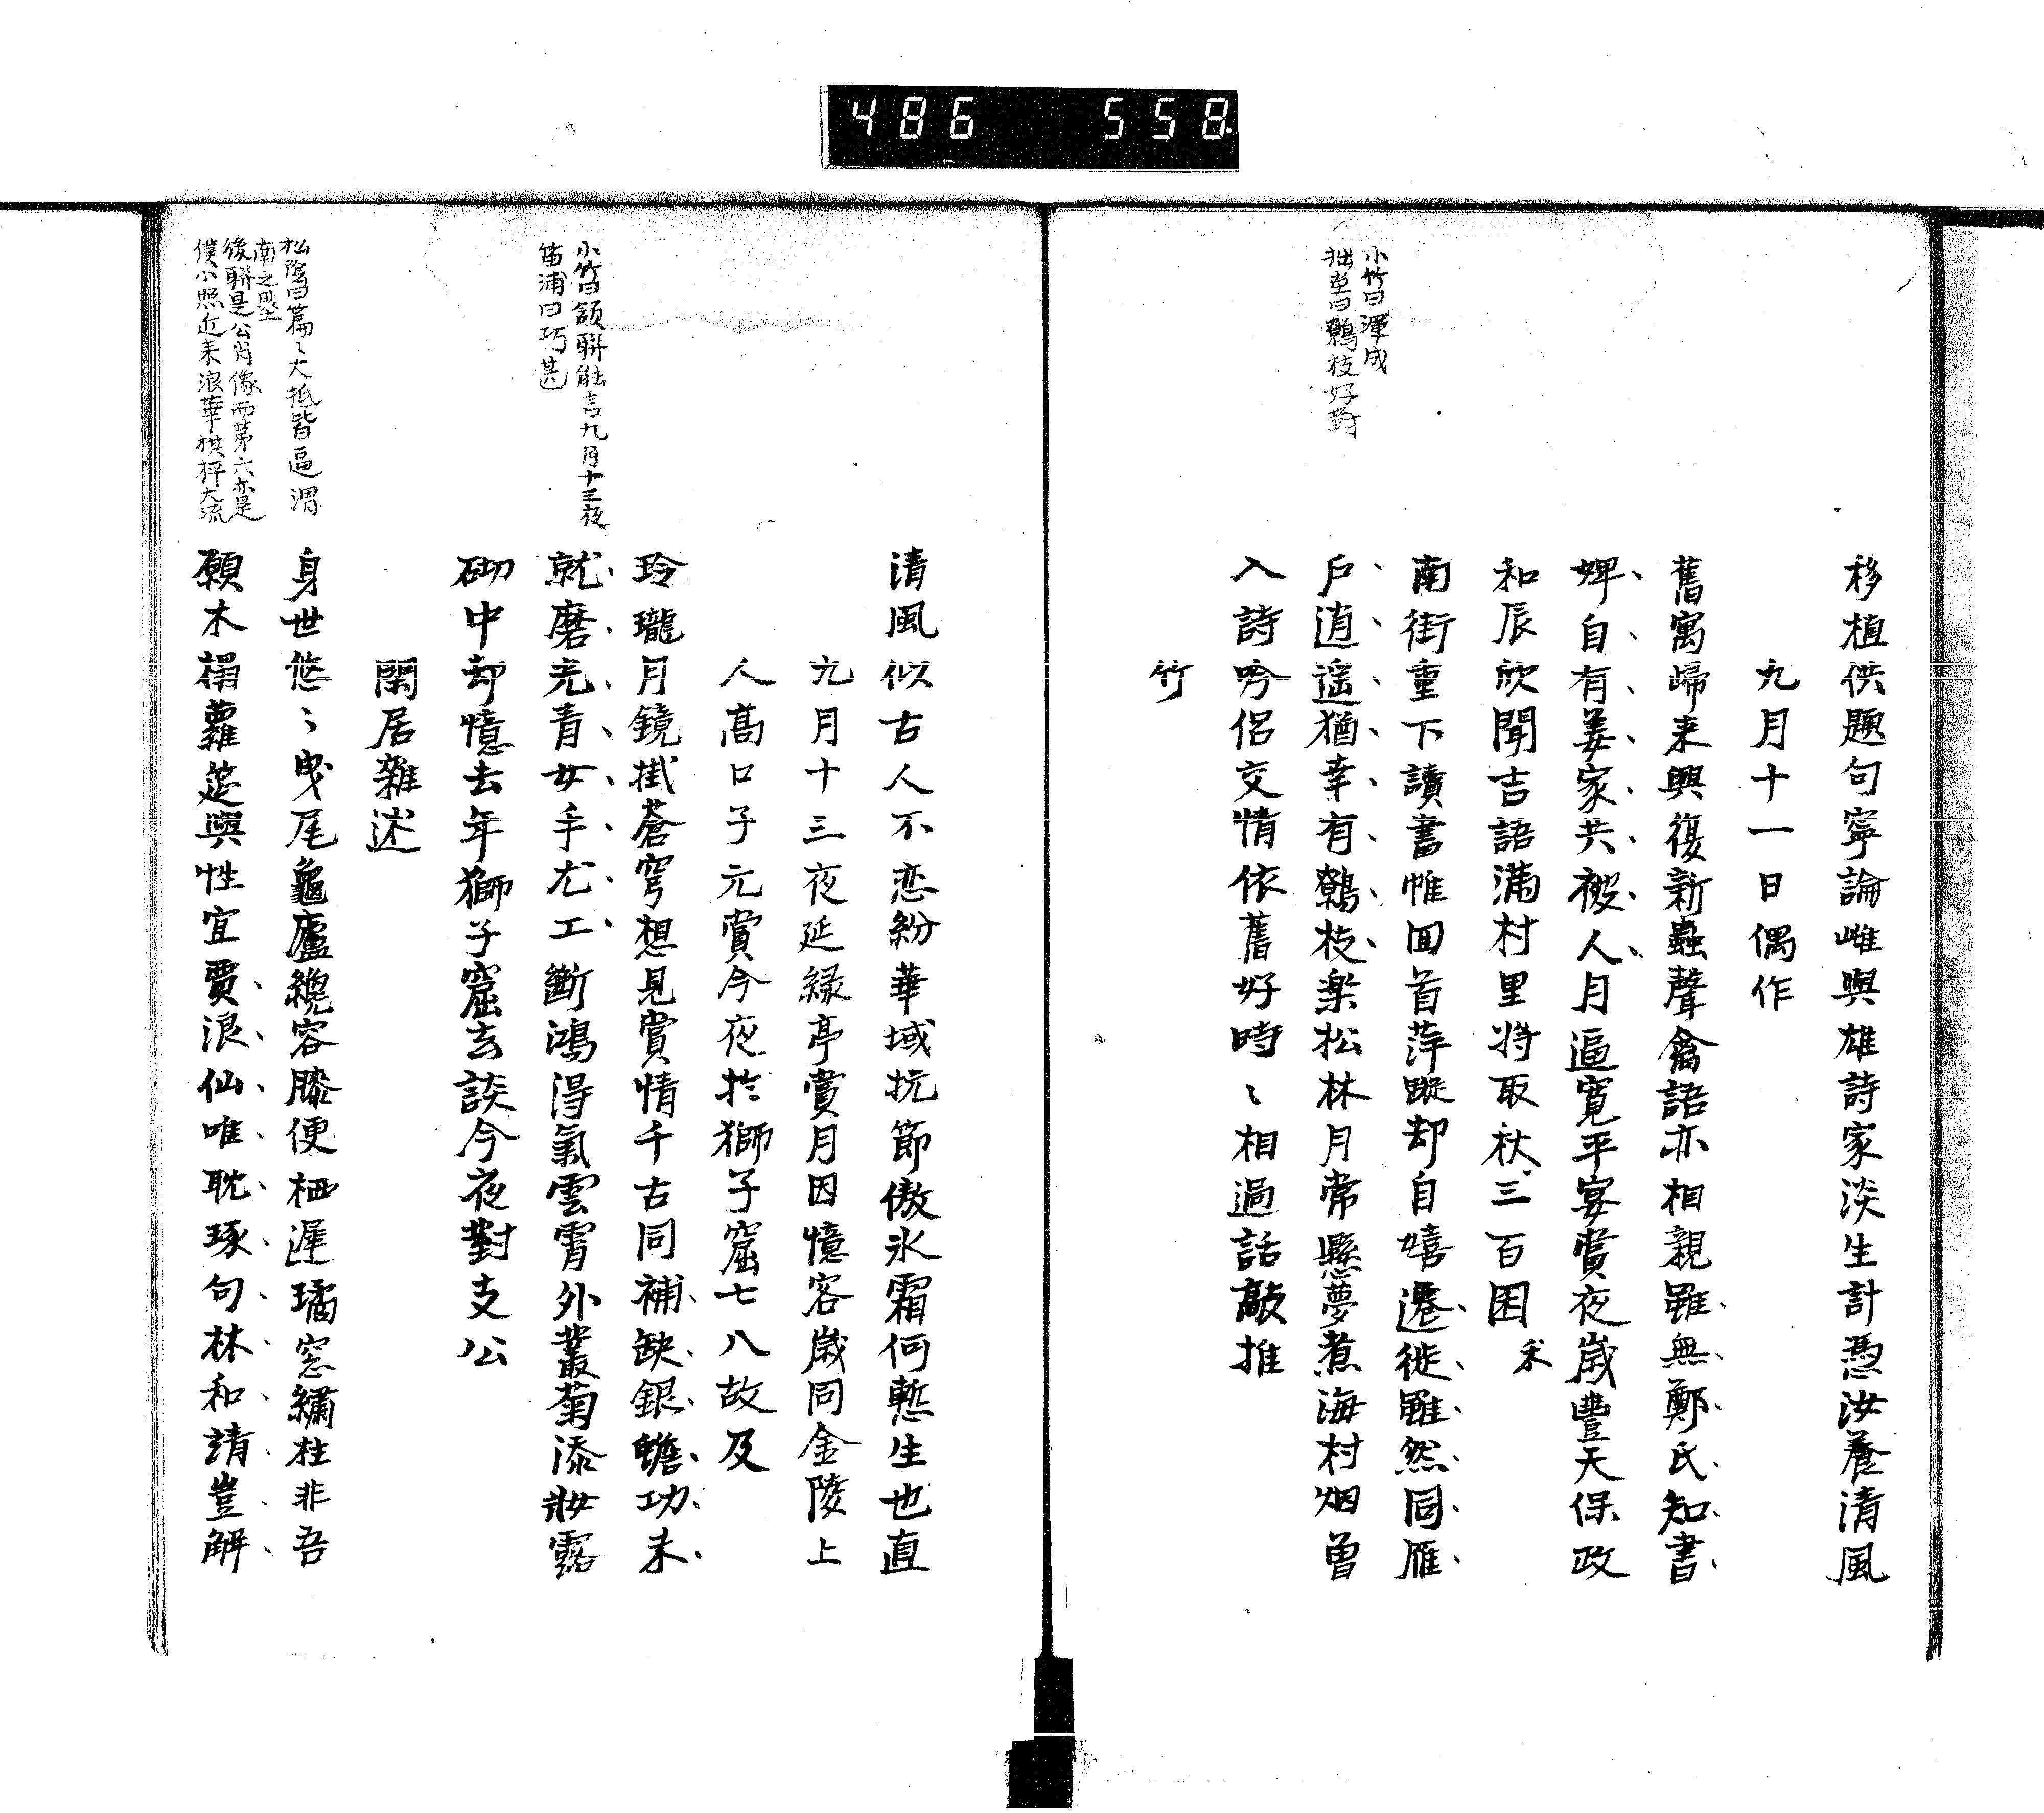 486 558
移植供題句寧論雌與雄詩家淡生計憑汝養清風
九月十一日偶作
舊寓歸来興復新蟲聲禽語亦相親雖無鄭氏知書
婢自有姜家共被人月逼寛平宴賞夜歳豊天保政
和辰欣聞吉語満村里将取秋三百囷
禾
南街重下讀書帷回首萍蹤却自嘻遷徙雖然同雁
戶逍遥猶幸有鷦枝楽松林月常懸夢煮海村烟曽
入詩吟侶交情依舊好時〻相過話敲推
竹
小竹曰渾成
拙堂曰鷦枝好對
清風似古人不恋紛華域抗節傲氷霜何慙生也直
九月十三夜延緑亭賞月因憶客歳同金陵上
人髙口子元賞今夜於獅子窟七八故及
玲瓏月鏡掛蒼穹想見賞情千古同補缺銀蟾功未
就磨光青女手尤工斷鴻得氣雲霄外叢菊添妝露
砌中却憶去年獅子窟去談今夜對支公
閑居雜述
身世悠〻曳尾龜廬纔容膝便栖遲璚窓繡柱非吾
願木榻蘿筵與性宜賈浪仙唯耽琢句林和靖豈解
小竹曰頷聯能言九月十三夜
菑浦曰巧甚
松陰曰篇〻大抵皆逼渭
南之壘
後聯是公肖像而第六亦是
僕小照近来浪華棋枰大流